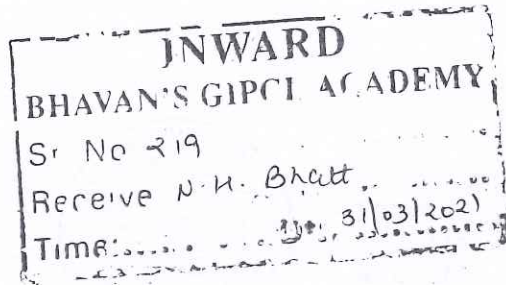 INWARD
BHAVAN'S GIPCL ACADEMY
Sr No 219
Receive N. H. Bhatt
Time: 31/03/2021